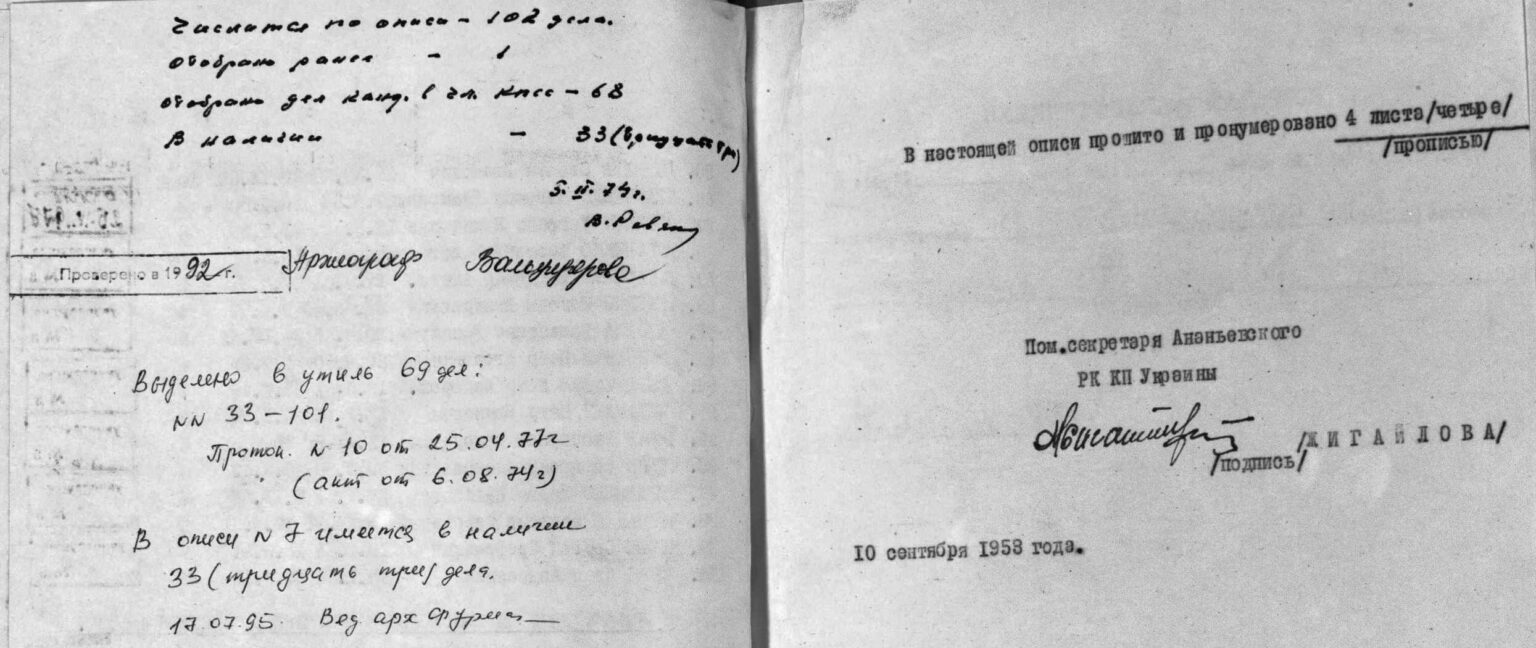 Числится по описи – 102 дела.
Отобрано ранее – 1
отобрано дел канд. в чл. КПСС – 68
В наличии – 33 (тридцать три)
5. 74 г.
Проверено в 1992 г. Археограф
Выделено в утиль 69 дел:
NN 33 – 101.
Проток. N 10 от 25.04.77г
(акт от 6.08.74г)
В описи N 7 имеется в наличии
33 (тридцать три) дела.
17.07.95. Вед арх
В настоящей описи прошито и пронумеровано 4 листа/четыре/
/прописью/
Пом.секретаря Ананьевского
РК КП Украины
/ЖИГАЙЛОВА/
/подпись/
10 сентября 1958 года.